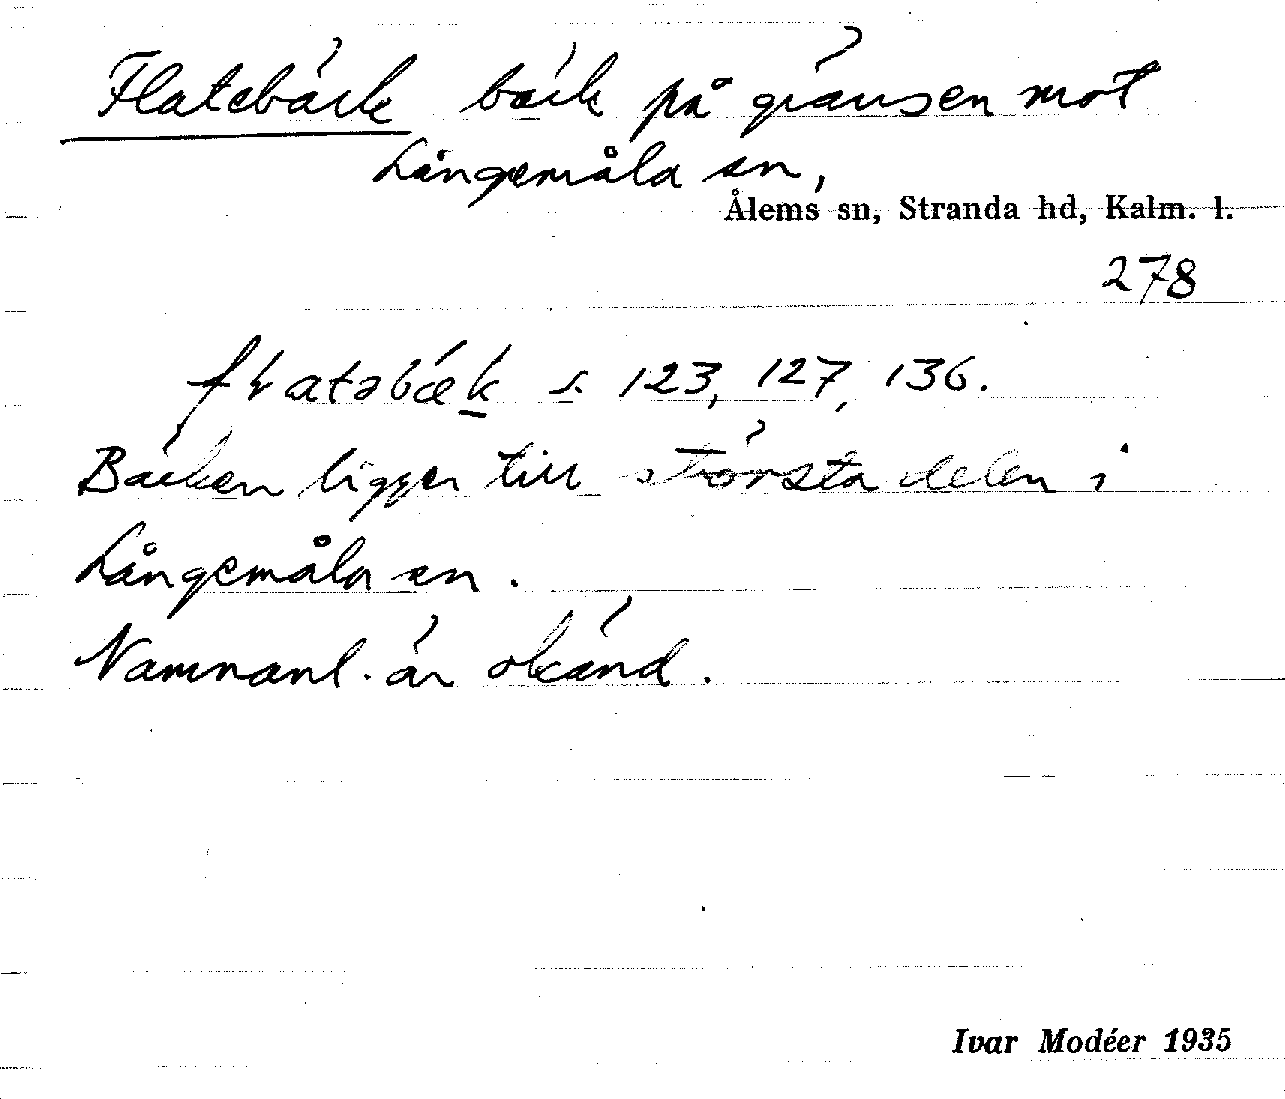 Flatebäck bäck på gränsen mot
Långemåla sn,
Ålems sn, Stranda hd, Kalm. l.
278
s. 123, 127, 136.
Bäcken ligger till största delen i
Långemåla sn.
Namnanl. är okänd.
Ivar Modéer 1935